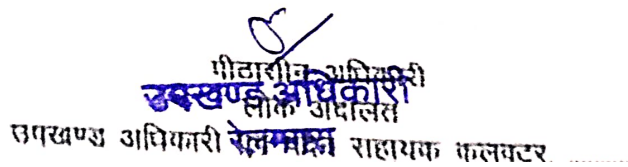 पीठासीन अधिकारी
उपखण्ड अधिकारी
लोक अदालत
उपखण्ड अधिकारी रेलमगरा सहायक कलक्टर